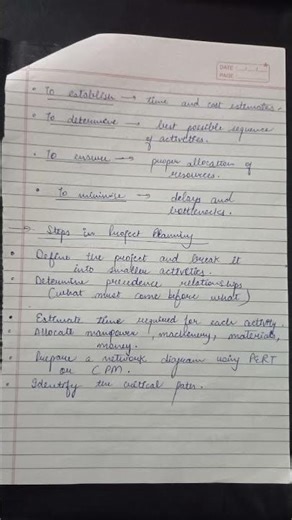 DATE
PAGE
• To establish → time and cost estimates.
• To determine → best possible sequence
of activities.
• To ensure → proper allocation of
resources.
• To minimise → delays and
bottlenecks.
→ Steps in Project Planning
• Define the project and break it
into smaller activities.
• Determine precedence relationships
(what must come before what)
• Estimate time required for each activity.
• Allocate manpower, machinery, materials,
money.
• Prepare a network diagram using PERT
or CPM.
• Identify the critical path.